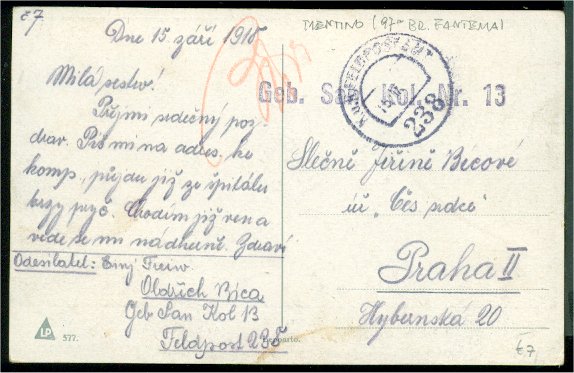 €7
TRENTINO (97ª BR. FANTERIA)
Dne 15 září 1915
Milá sestro!
Přijmi srdečný poz-
drav. Piš mi na adres. ke
komp., půjdu již ze špitálu
brzy pryč. Chodím již ven a
vede se mi nádherně. Zdraví
Odesilatel: Einj Freiw.
Oldřich Bica
Geb San Kol 13
Feldpost 238
K.u.K. FELDPOSTAMT
238
Geb. San. Kol. Nr. 13
Slečně Jiřině Bicové
Praha II
Hybernská 20
LP
577.
€7